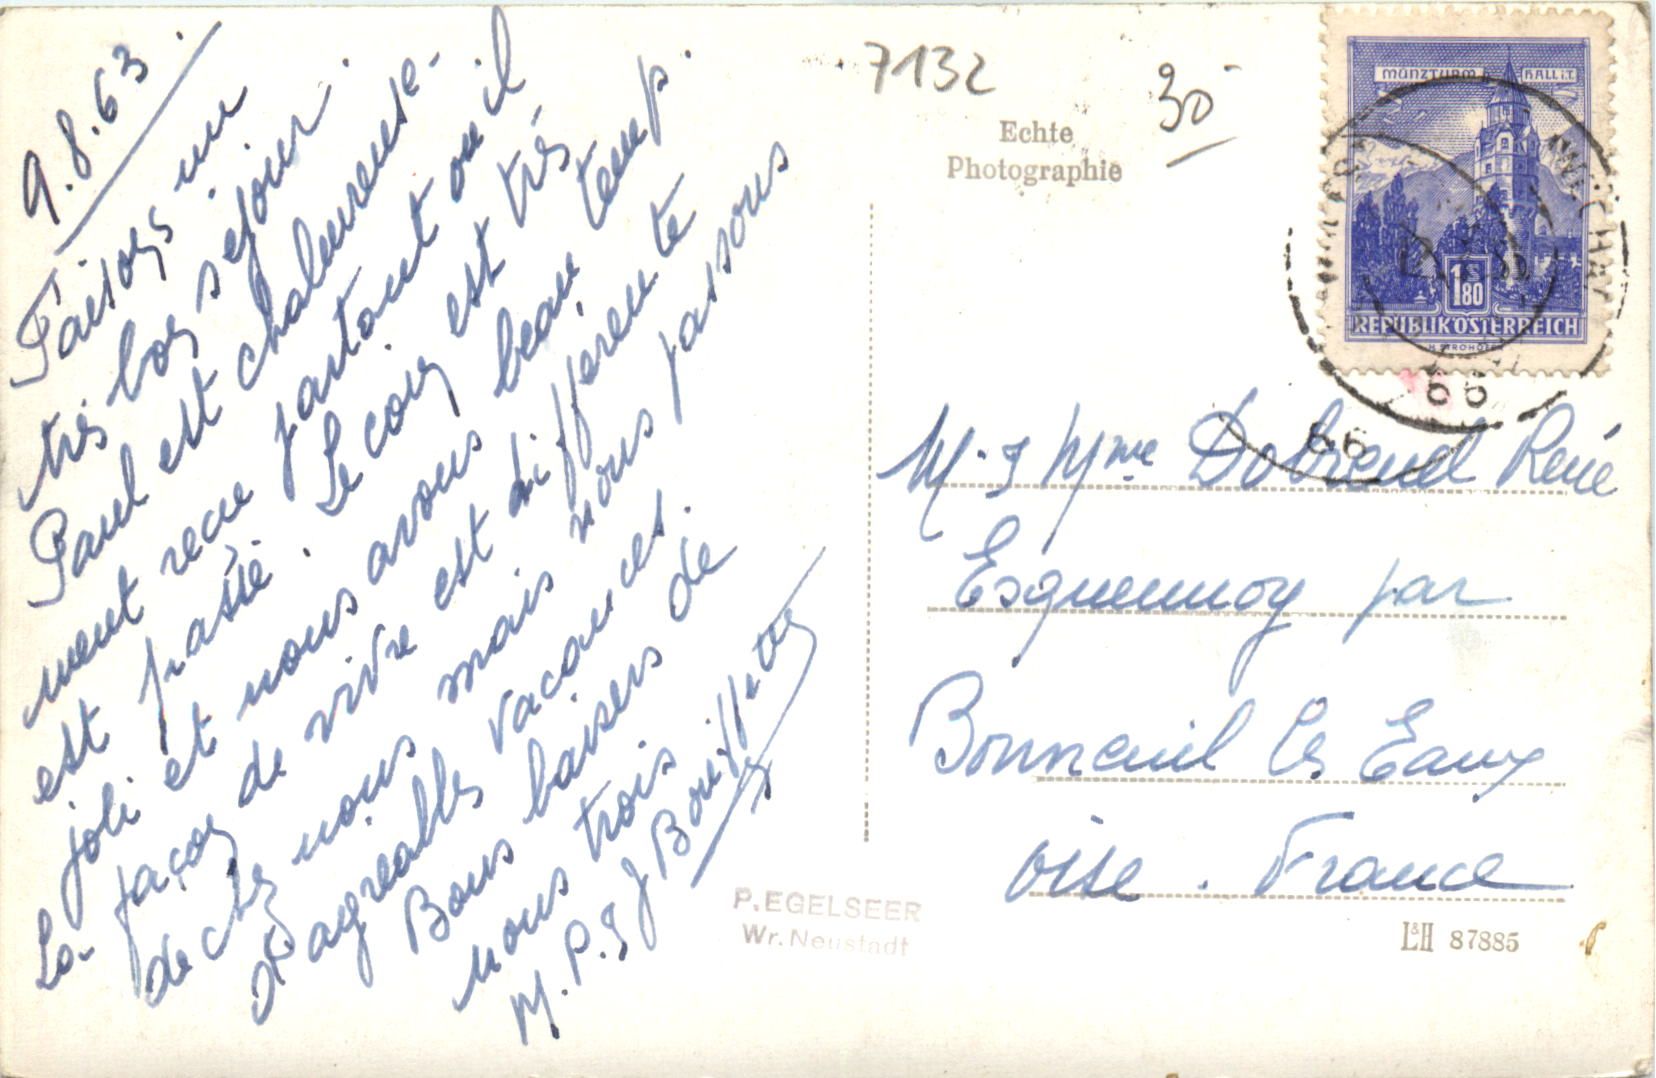 9.8.63.
Faisons un
très bon sejour.
Paul est chaleureuse-
ment recu partout ou il
est passé. Le coin est très
joli et nous avons beau temps.
La façon de vivre est differente
de chez nous mais nous passons
d'agreables vacances.
Bons baisers de
nous trois
M. P. & J
7132
30
Echte
Photographie
MÜNZTURM HALL i.T.
1 S 80
REPUBLIK ÖSTERREICH
66
66
M. & Mme René
Esquennoy par
Bonneuil les Eaux
Oise. France
P. EGELSEER
Wr. Neustadt
L&H 87885